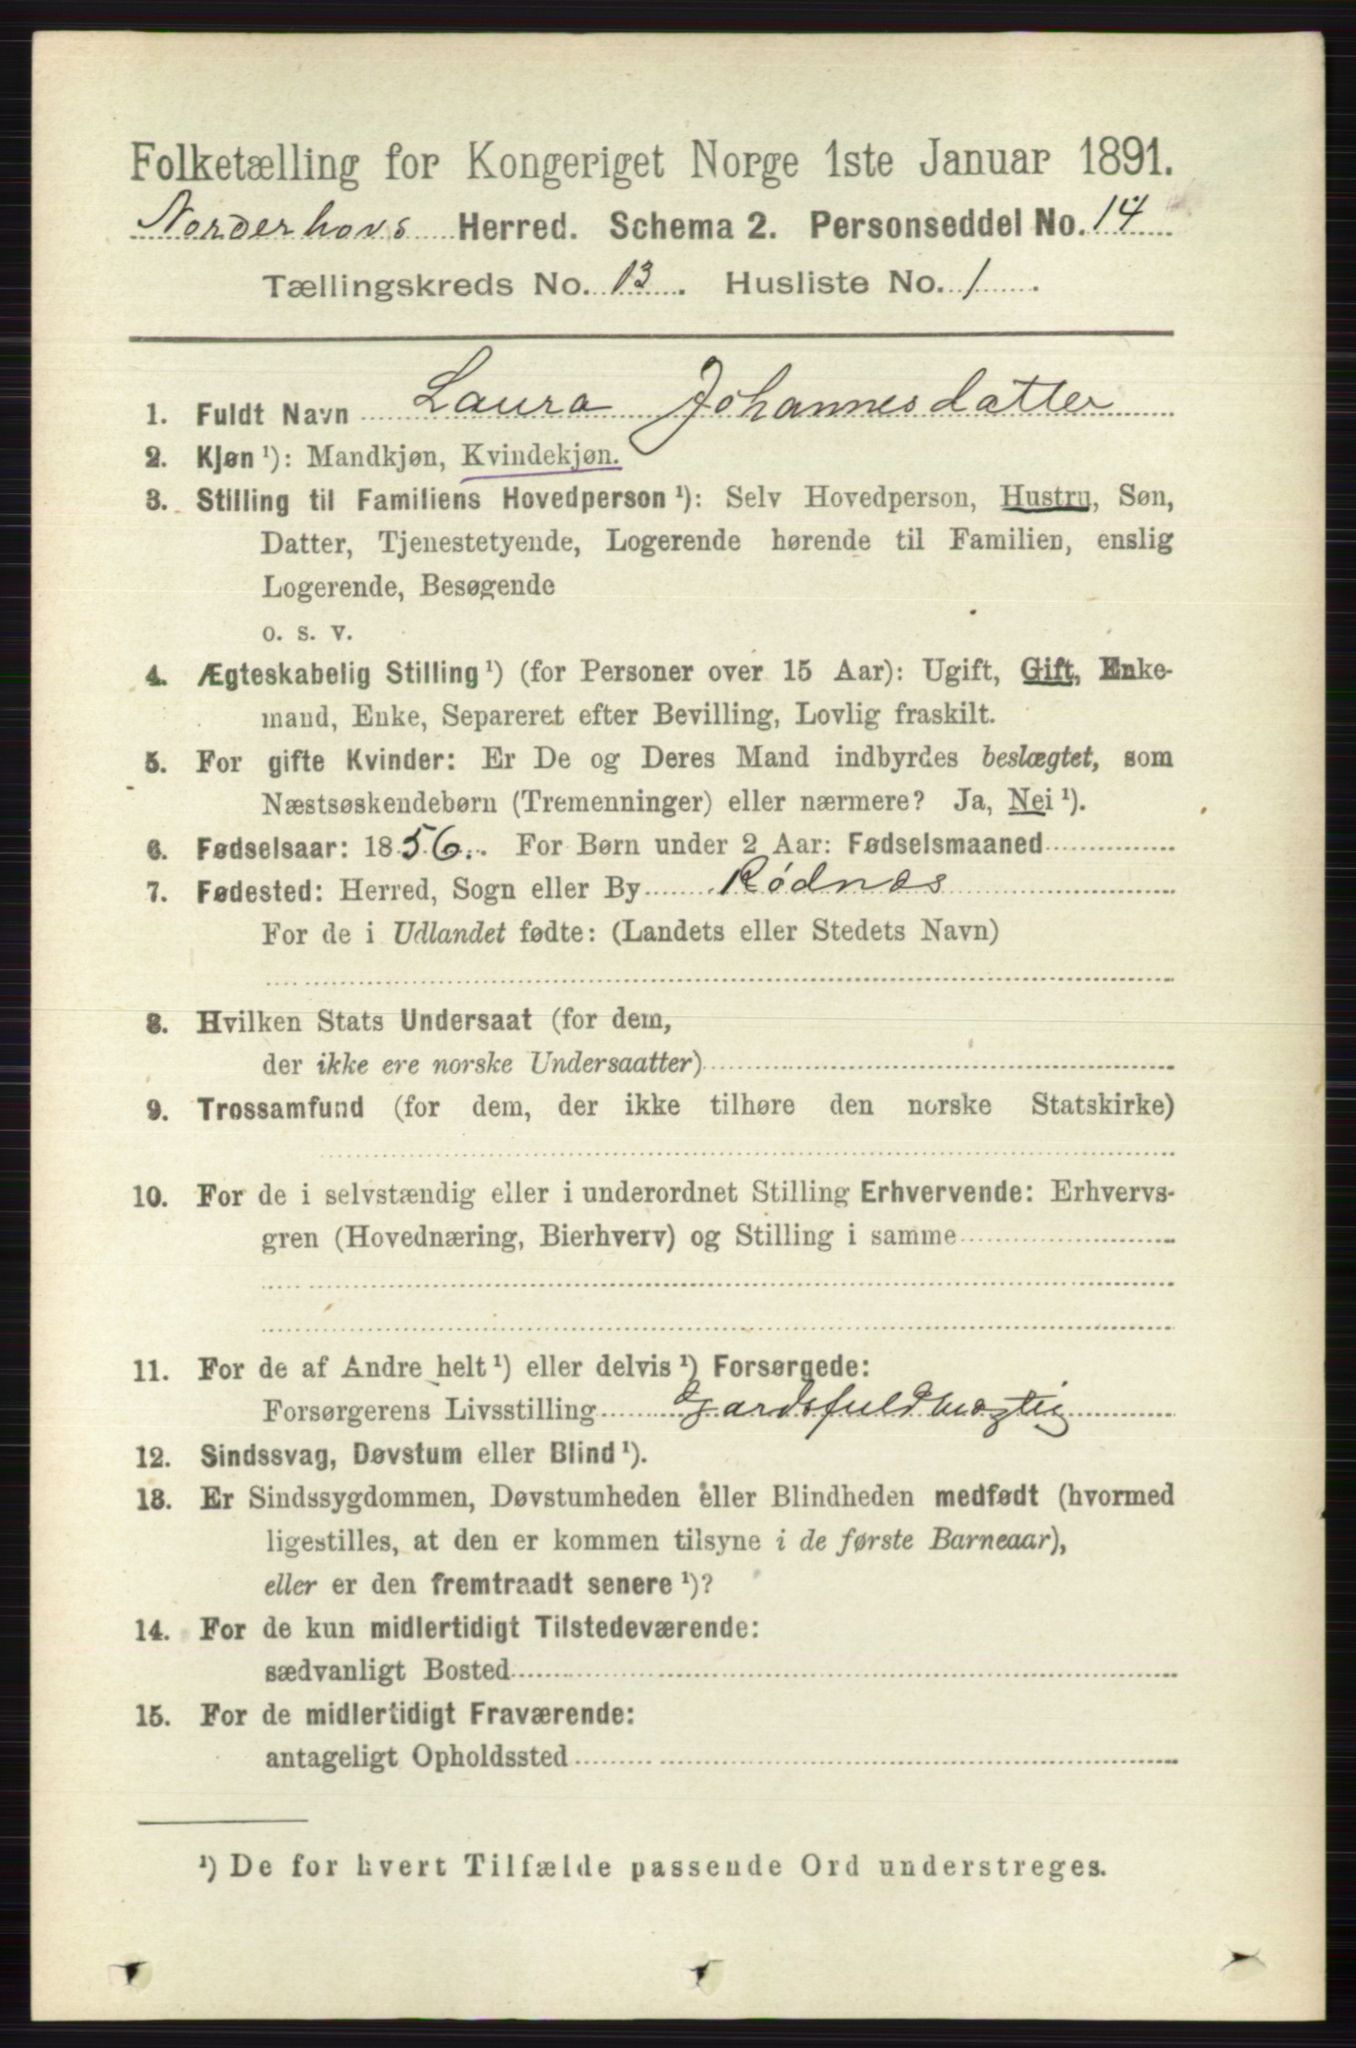 Folketælling for Kongeriget Norge 1ste Januar 1891.
Norderhovs Herred. Schema 2. Personseddel No. 14
Tællingskreds No. 13. Husliste No. 1.
1. Fuldt Navn Laura Johannesdatter
2. Kjøn ¹): Mandkjøn, Kvindekjøn.
3. Stilling til Familiens Hovedperson ¹): Selv Hovedperson, Hustru, Søn,
Datter, Tjenestetyende, Logerende hørende til Familien, enslig
Logerende, Besøgende
o. s. v.
4. Ægteskabelig Stilling ¹) (for Personer over 15 Aar): Ugift, Gift, Enke-
mand, Enke, Separeret efter Bevilling, Lovlig fraskilt.
5. For gifte Kvinder: Er De og Deres Mand indbyrdes beslægtet, som
Næstsøskendebørn (Tremenninger) eller nærmere? Ja, Nei ¹).
6. Fødselsaar: 1856. For Børn under 2 Aar: Fødselsmaaned
7. Fødested: Herred, Sogn eller By Rødnæs
For de i Udlandet fødte: (Landets eller Stedets Navn)
8. Hvilken Stats Undersaat (for dem,
der ikke ere norske Undersaatter)
9. Trossamfund (for dem, der ikke tilhøre den norske Statskirke)
10. For de i selvstændig eller i underordnet Stilling Erhvervende: Erhvervs-
gren (Hovednæring, Bierhverv) og Stilling i samme
11. For de af Andre helt ¹) eller delvis ¹) Forsørgede:
Forsørgerens Livsstilling Gardsfuldmægtig
12. Sindssvag, Døvstum eller Blind ¹).
13. Er Sindssygdommen, Døvstumheden eller Blindheden medfødt (hvormed
ligestilles, at den er kommen tilsyne i de første Barneaar),
eller er den fremtraadt senere ¹)?
14. For de kun midlertidigt Tilstedeværende:
sædvanligt Bosted
15. For de midlertidigt Fraværende:
antageligt Opholdssted
¹) De for hvert Tilfælde passende Ord understreges.